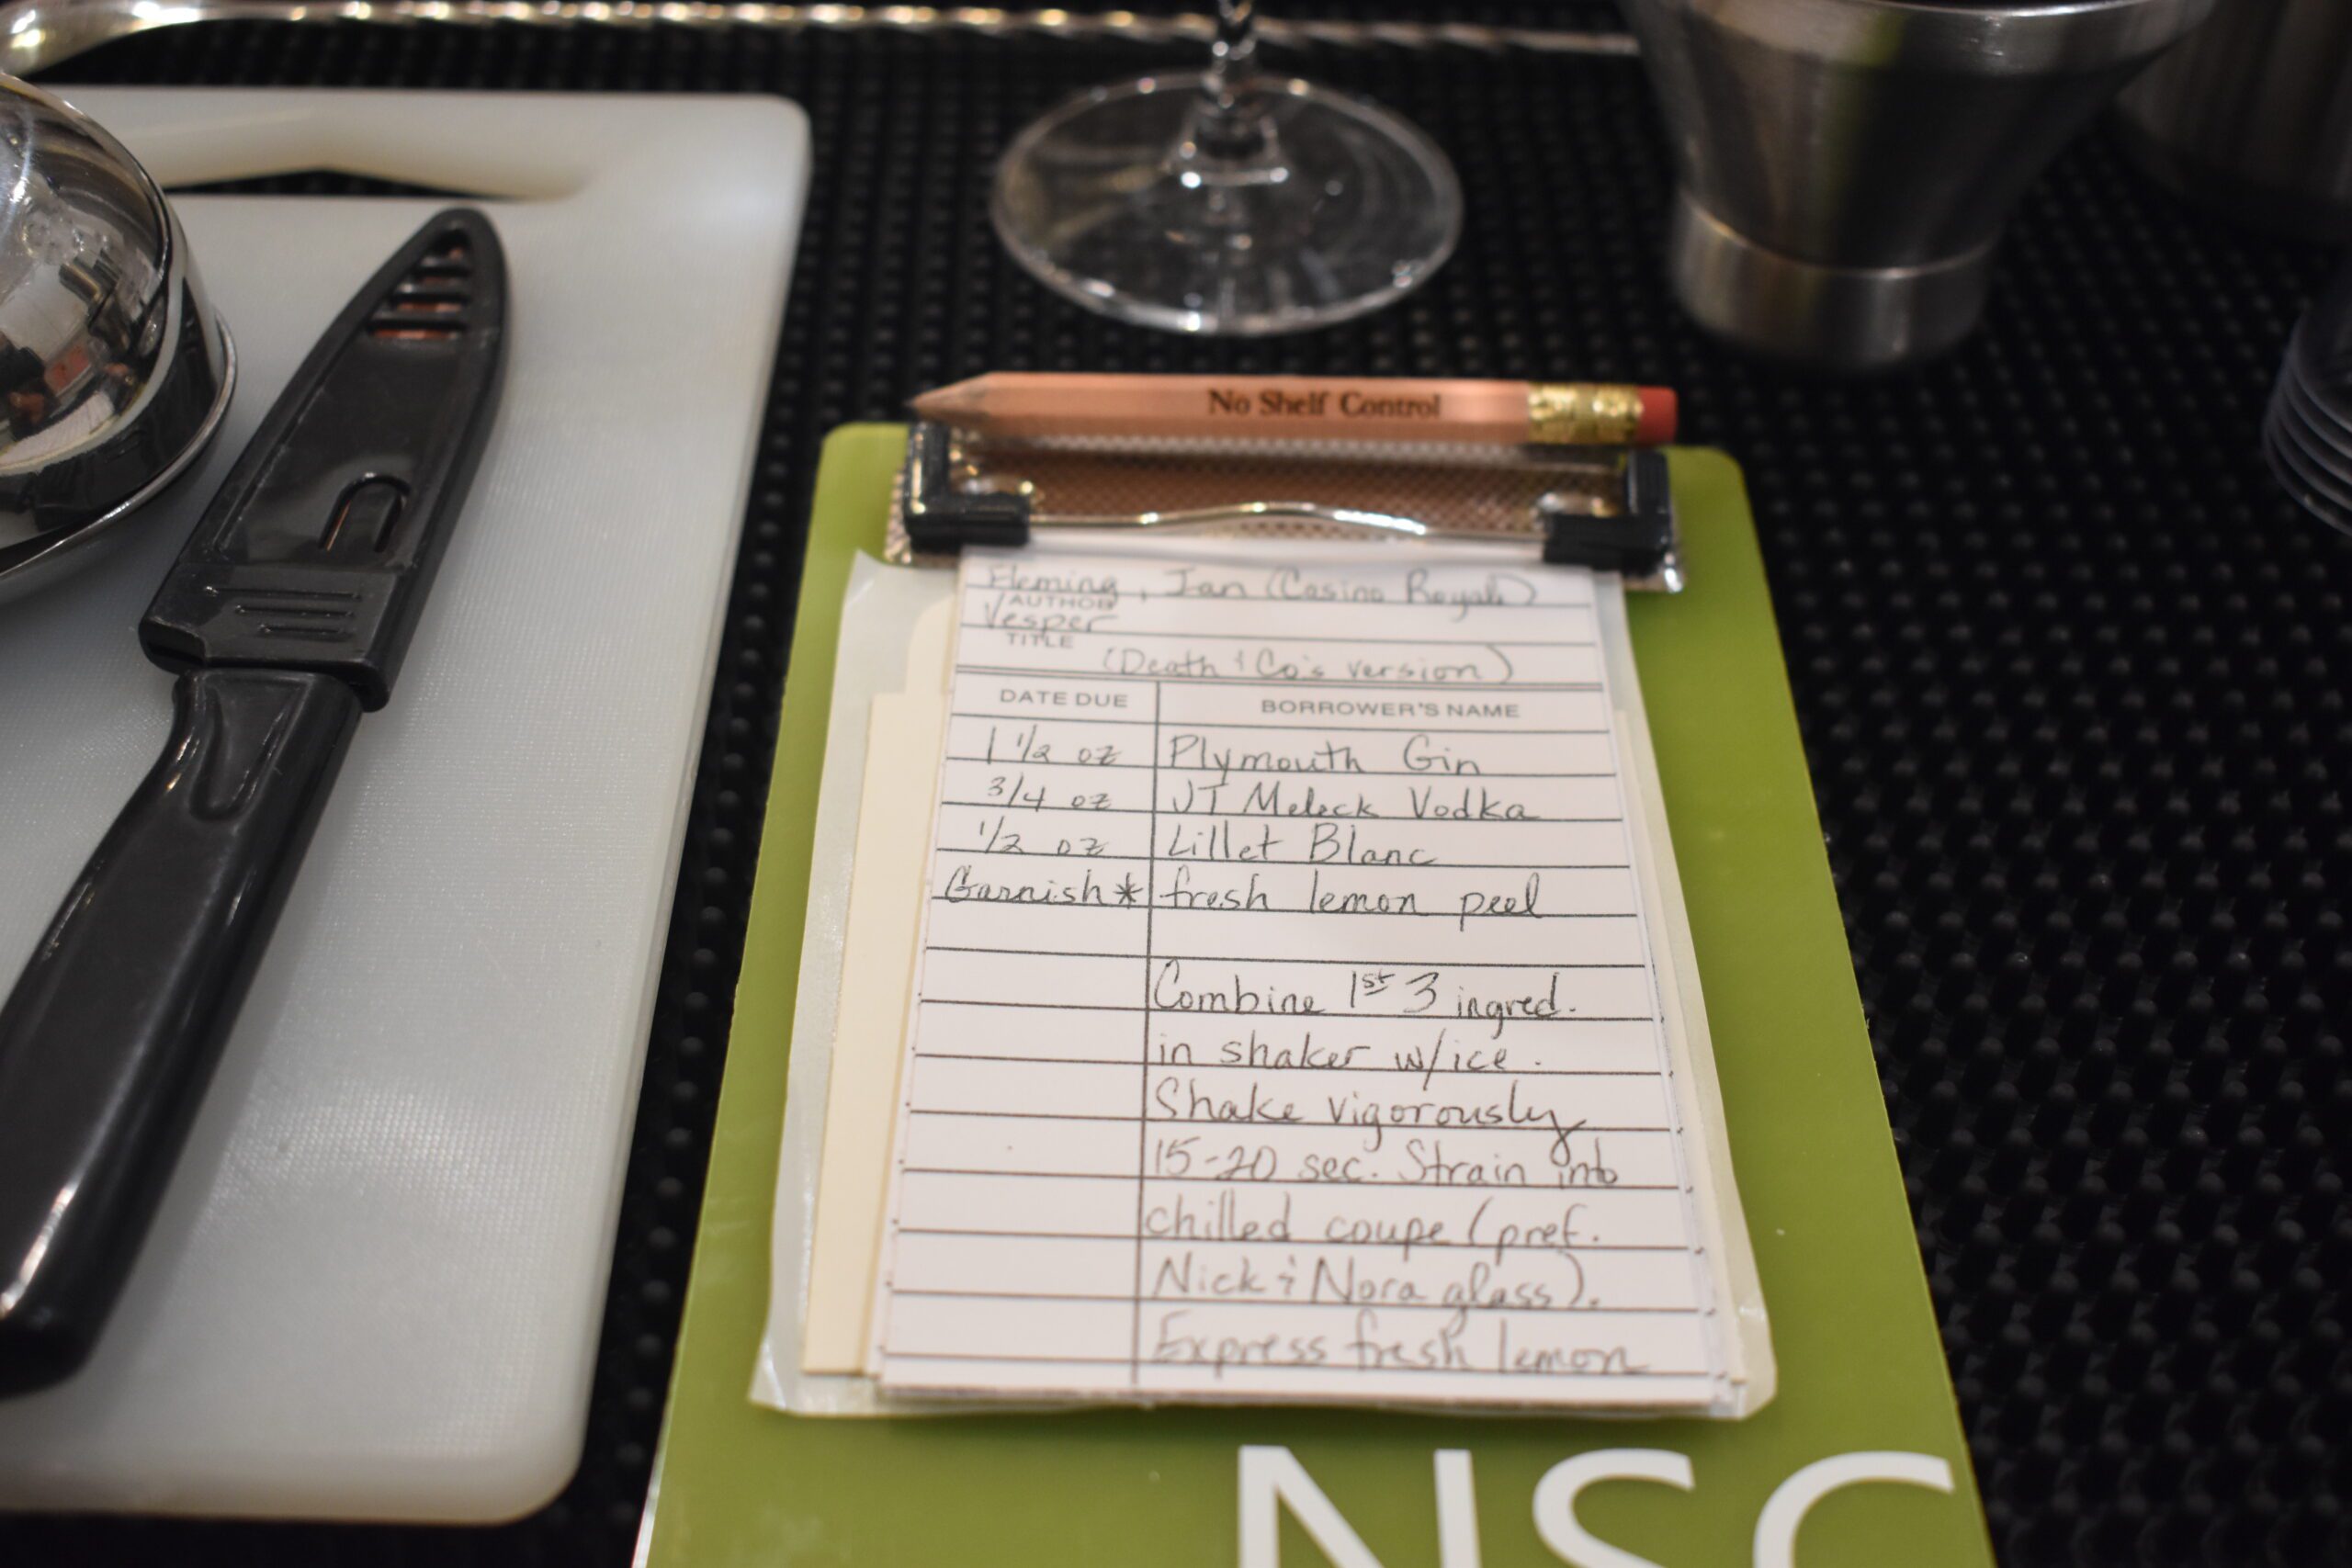 No Shelf Control
Fleming, Ian (Casino Royale)
AUTHOR
Vesper
TITLE
(Death & Co's version)
DATE DUE BORROWER'S NAME
1 1/2 oz Plymouth Gin
3/4 oz JT Meleck Vodka
1/2 oz Lillet Blanc
Garnish* fresh lemon peel
Combine 1st 3 ingred.
in shaker w/ice.
Shake vigorously
15-20 sec. Strain into
chilled coupe (pref.
Nick & Nora glass).
Express fresh lemon
NSC